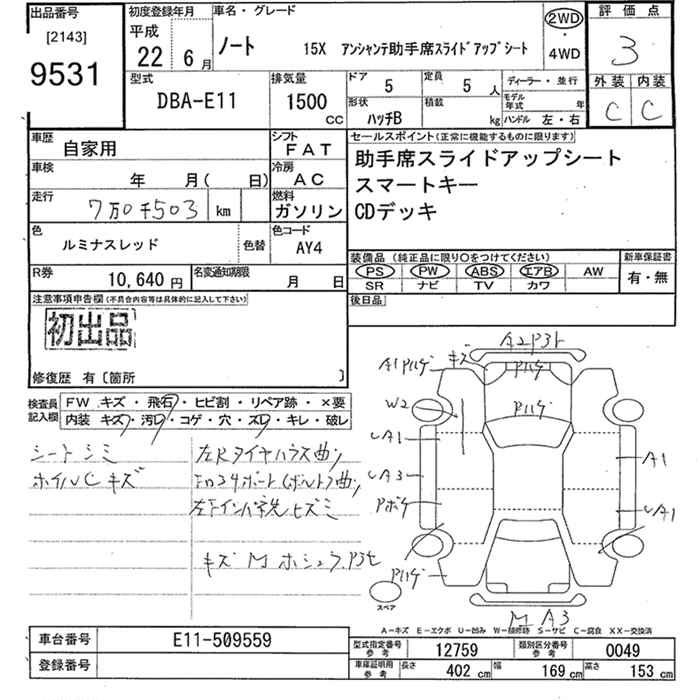 出品番号 初度登録年月 車名・グレード 2WD 評価点
[2143] 平成 ノート 15X アンシャンテ助手席スライドアップシート ・ 3
9531 22 6月 4WD
型式 排気量 ドア 5 定員 5 人 ディーラー・並行 外装 内装
DBA-E11 1500 cc 形状 ハッチB 積載 kg モデル年式 年 C C
ハンドル 左・右
車歴 自家用 シフト FAT セールスポイント(正常に機能するものに限ります)
車検 年 月( 日) 冷房 AC 助手席スライドアップシート
走行 7万0千503 km 燃料 ガソリン スマートキー
CDデッキ
色 ルミナスレッド 色替 色コード AY4
装備品 (純正品に限り○をつけてください) 新車保証書
R券 10,640 円 名変通知期限 月 日 PS PW ABS エアB AW 有・無
SR ナビ TV カワ
注意事項申告欄(不具合内容等は具体的に記入して下さい) 後日品
初出品
修復歴 有〔箇所 〕
検査員記入欄 FW キズ・飛石・ヒビ割・リペア跡・×要
内装 キズ・汚レ・コゲ・穴・スレ・キレ・破レ
シートシミ
ホイルCキズ
A2
A1
キズ
W2
A1
A3
A1
A1
M A3
スペア
A-キズ E-エクボ U-凹み W-補修跡 S-サビ C-腐食 XX-交換済
車台番号 E11-509559 型式指定番号 参考 12759 類別区分番号 参考 0049
登録番号 車庫証明用 参考 長さ 402 cm 幅 169 cm 高さ 153 cm